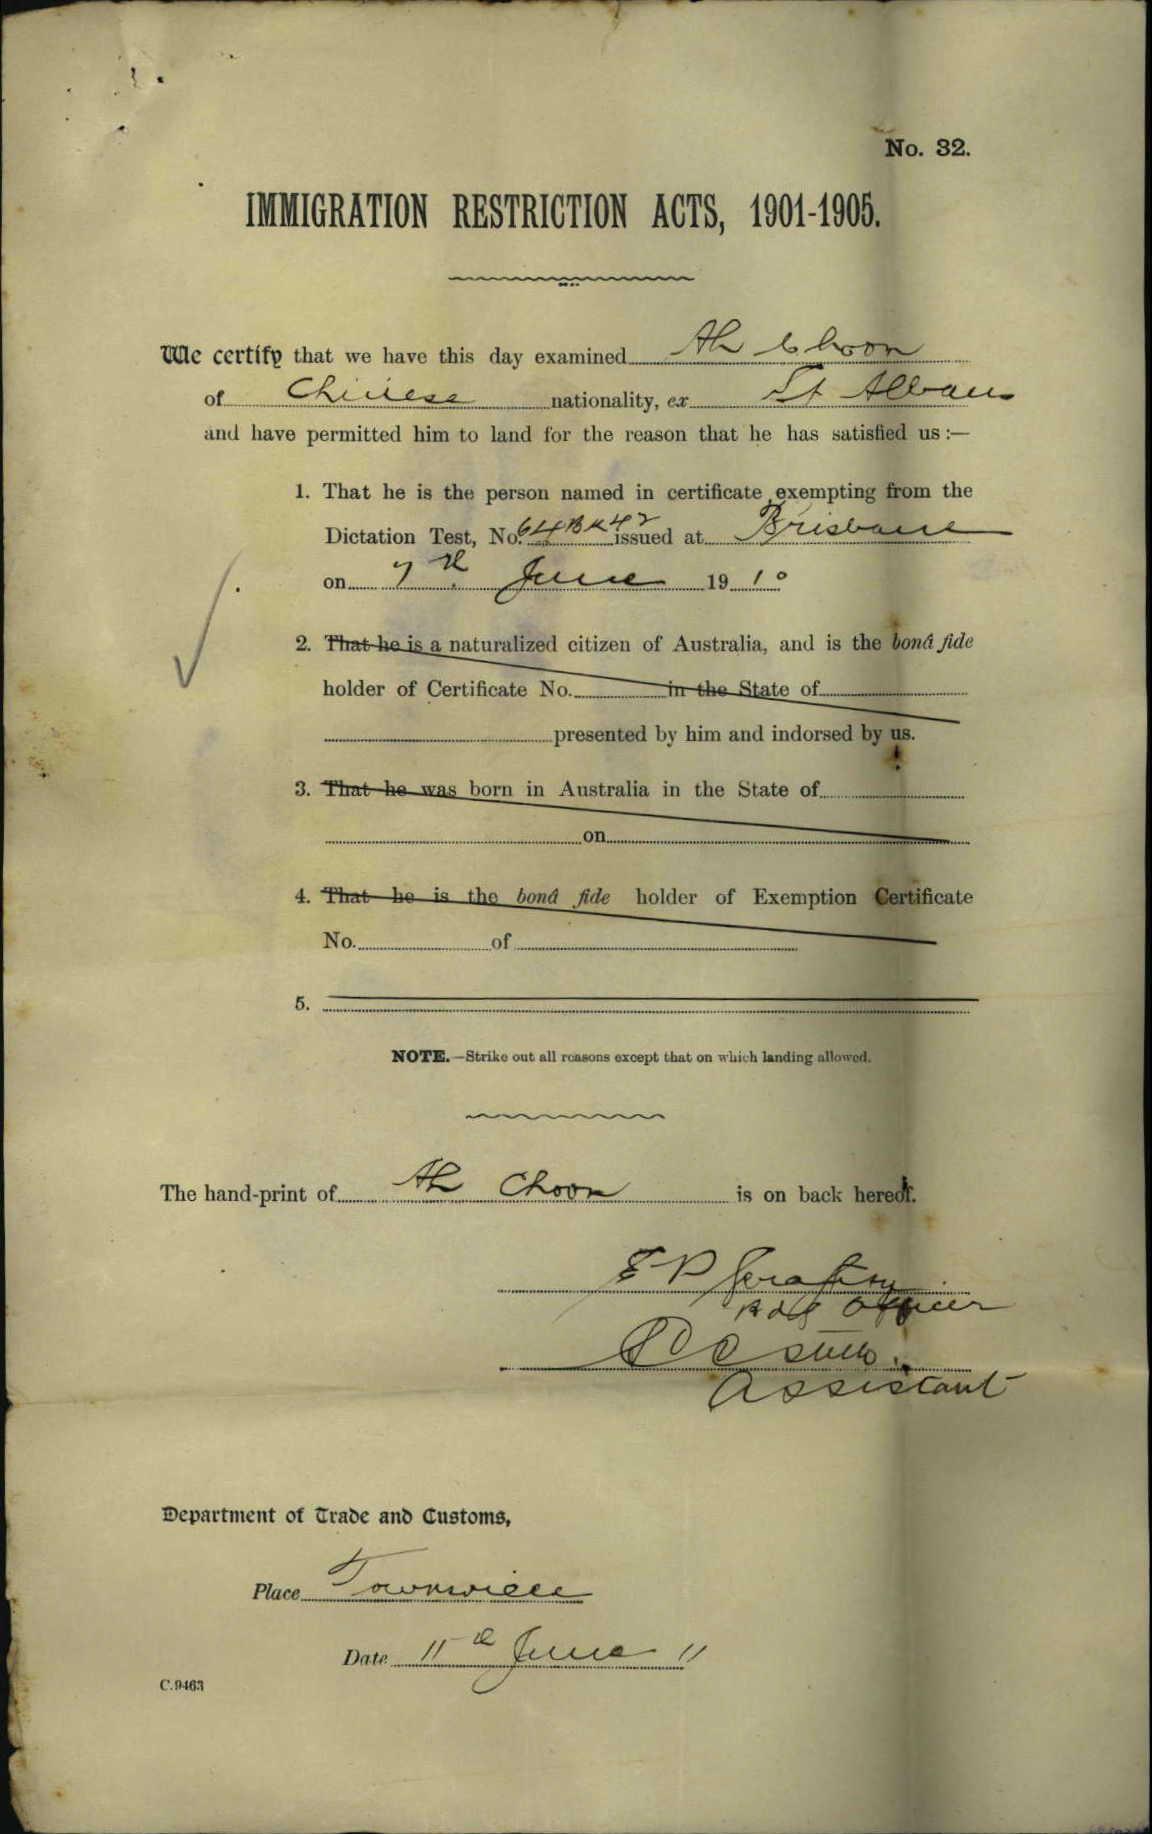 No. 32.
IMMIGRATION RESTRICTION ACTS, 1901-1905.
We certify that we have this day examined Ah Choon
of Chinese nationality, ex St Albans
and have permitted him to land for the reason that he has satisfied us :—
1. That he is the person named in certificate exempting from the
Dictation Test, No. 64 BK 42 issued at Brisbane
on 7th June 1910
2. That he is a naturalized citizen of Australia, and is the bonâ fide
holder of Certificate No. in the State of
presented by him and indorsed by us.
3. That he was born in Australia in the State of
on
4. That he is the bonâ fide holder of Exemption Certificate
No. of
5.
NOTE.—Strike out all reasons except that on which landing allowed.
The hand-print of Ah Choon is on back hereof.
E P
Officer
Assistant
Department of Trade and Customs,
Place Townsville
Date 11th June 11
C.9463